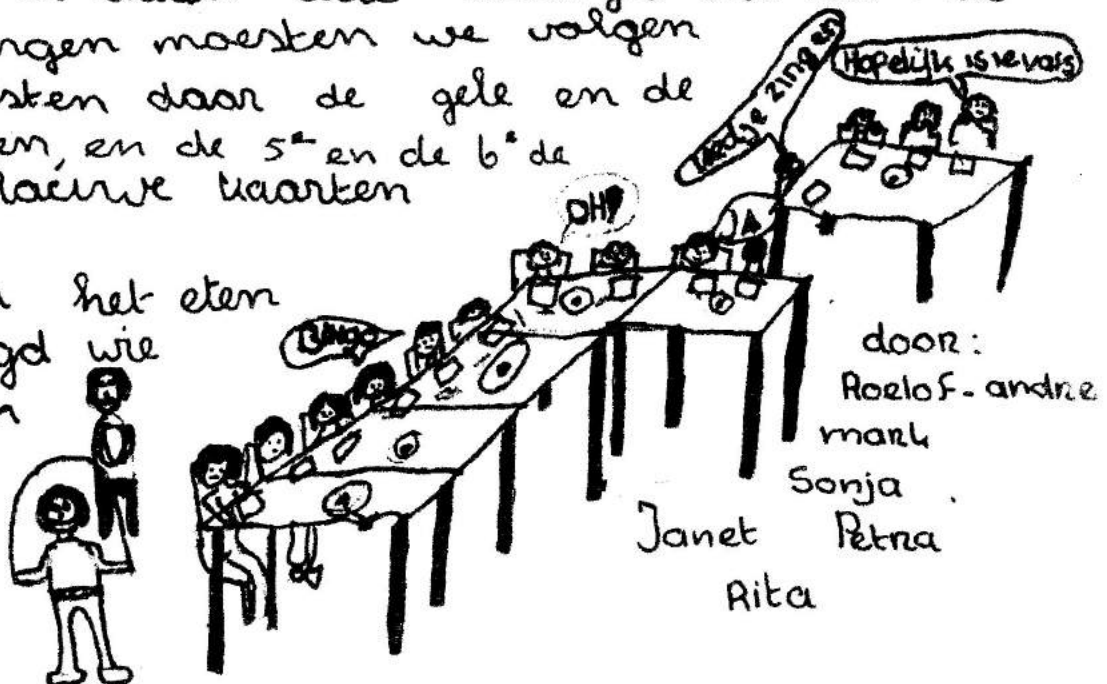 ngen moesten we volgen
sten daar de gele en de
en, en de 5e en de 6e de
lauwe kaarten
het eten
gd wie
n
BINGO
OH!
Liedje zingen
Hopelijk is ie vals
A
door:
Roelof-andre
mark
Sonja
Janet Petra
Rita